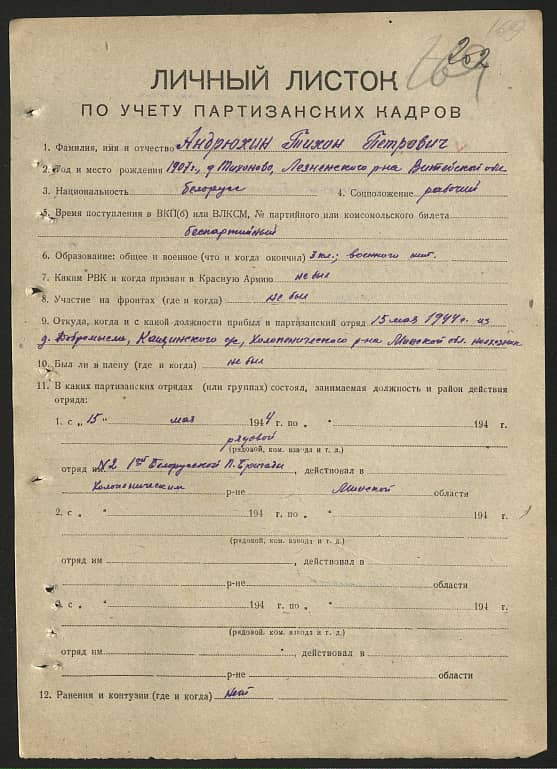 202
ЛИЧНЫЙ ЛИСТОК
ПО УЧЕТУ ПАРТИЗАНСКИХ КАДРОВ
1. Фамилия, имя и отчество Андрюхин Тихон Петрович
2. Год и место рождения 1907 г., д Тихоново, Лезненского р-на Витебской обл.
3. Национальность белорус 4. Соцположение рабочий
5. Время поступления в ВКП(б) или ВЛКСМ, № партийного или комсомольского билета
беспартийный
6. Образование: общее и военное (что и когда окончил) 3 кл.; военного нет.
7. Каким РВК и когда призван в Красную Армию не был
8. Участие на фронтах (где и когда) не был
9. Откуда, когда и с какой должности прибыл в партизанский отряд 15 мая 1944 г. из
д. Добромысль, с/с, Холопенического р-на Минской обл.
10. Был ли в плену (где и когда) не был
11. В каких партизанских отрядах (или группах) состоял, занимаемая должность и район действия
отряда:
1. с „ 15 " мая 1944 г. по „ " 194 г.
рядовой
(рядовой, ком. взвода и т. д.)
отряд им. №2 1ой Белорусской П. Бригады, действовал в
Холопеническим р-не Минской области
2. с „ " 194 г. по „ " 194 г.
(рядовой, ком. взвода и т. д.)
отряд им , действовал в
р-не области
3. с „ " 194 г. по „ " 194 г.
(рядовой, ком. взвода и т. д.)
отряд им , действовал в
р-не области
12. Ранения и контузии (где и когда) нет